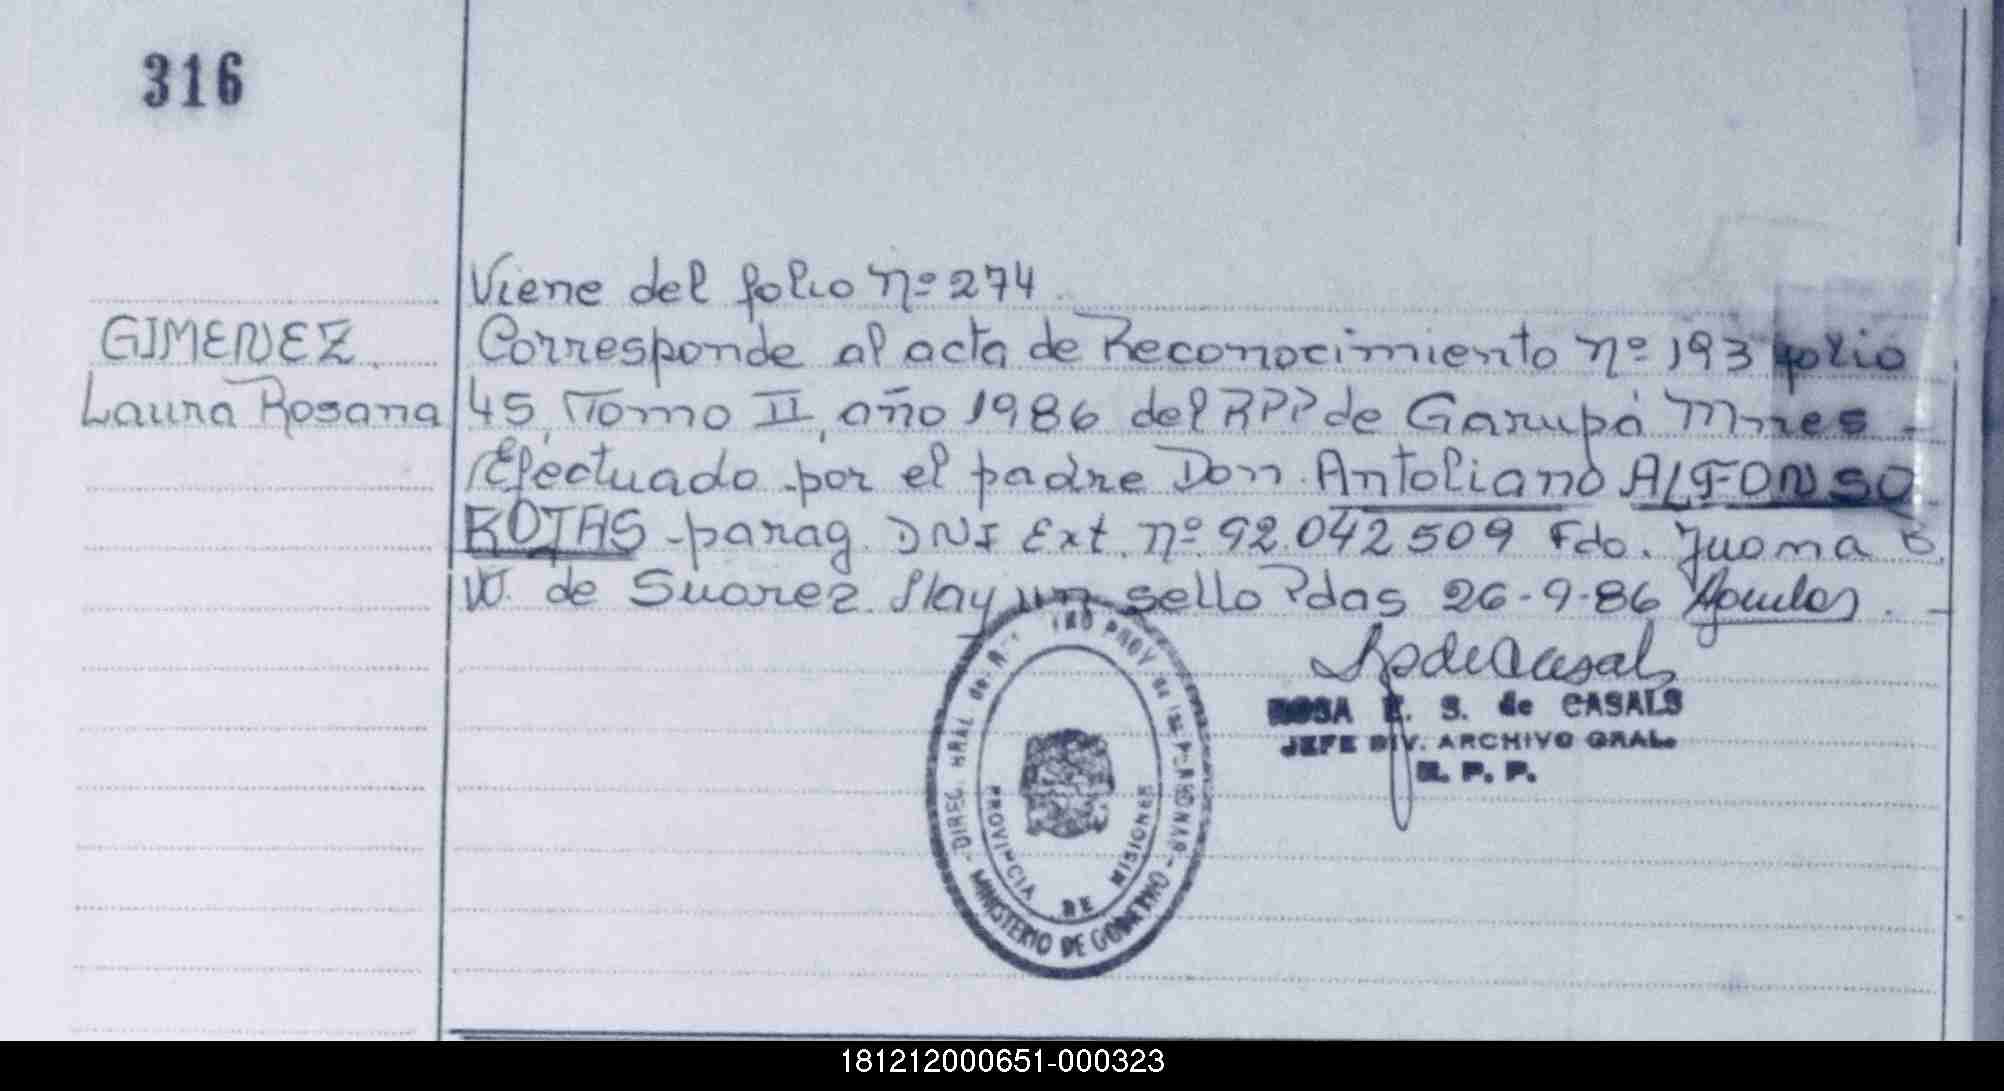 316
Viene del folio nº 274
GIMENEZ
Corresponde al acta de Reconocimiento nº 193 folio
Laura Rosana
45, Tomo II, año 1986 del RPP de Garupá Mnes -
Efectuado por el padre Don Antoliano ALFONSO
ROJAS - parag. DNI Ext. nº 92.042509 Fdo. Juana B.
W. de Suarez. Hay un sello Pdas 26-9-86
de Casals
ROSA E. S. de CASALS
JEFE DIV. ARCHIVO GRAL.
R. P. P.
DIREC. GRAL de PROV. de las PERSONAS
MINISTERIO DE GOBIERNO
PROVINCIA DE MISIONES
181212000651-000323